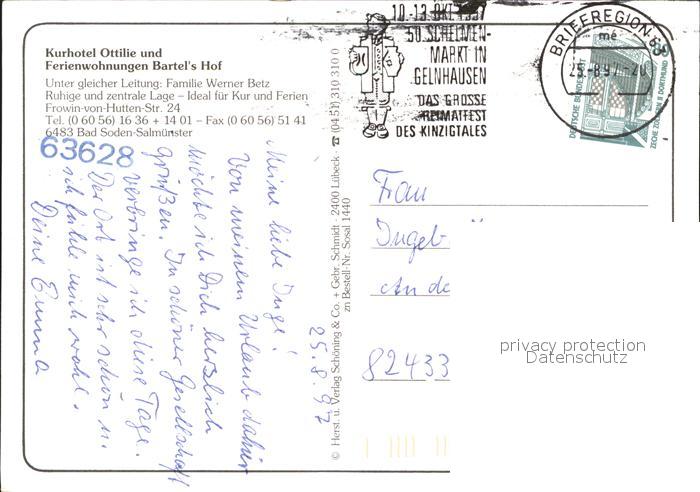 Kurhotel Ottilie und
Ferienwohnungen Bartel's Hof
Unter gleicher Leitung: Familie Werner Betz
Ruhige und zentrale Lage – Ideal für Kur und Ferien
Frowin-von-Hutten-Str. 24
Tel. (0 60 56) 16 36 + 14 01 – Fax (0 60 56) 51 41
6483 Bad Soden-Salmünster
63628
25.8.97
Meine liebe Inge!
Von meinem Urlaub daher
möchte ich Dich herzlich
grüßen. In schöner Gesellschaft
verbringe ich diese Tage.
Der Ort ist sehr schön u.
ich fühle mich wohl.
Deine Emma
© Herst. u. Verlag Schöning & Co. + Gebr. Schmidt · 2400 Lübeck · ☎ (04 51) 310 310 0
zn Bestell-Nr. Sosal 1440
10.-13.OKT.1997
50.SCHELMEN-
MARKT IN
GELNHAUSEN
DAS GROSSE
HEIMATFEST
DES KINZIGTALES
BRIEFREGION 630
mé
25.-8.97.-20
DEUTSCHE BUNDESPOST
ZECHE ZOLLERN II DORTMUND
Frau
Ingeb
An de
82433
privacy protection
Datenschutz